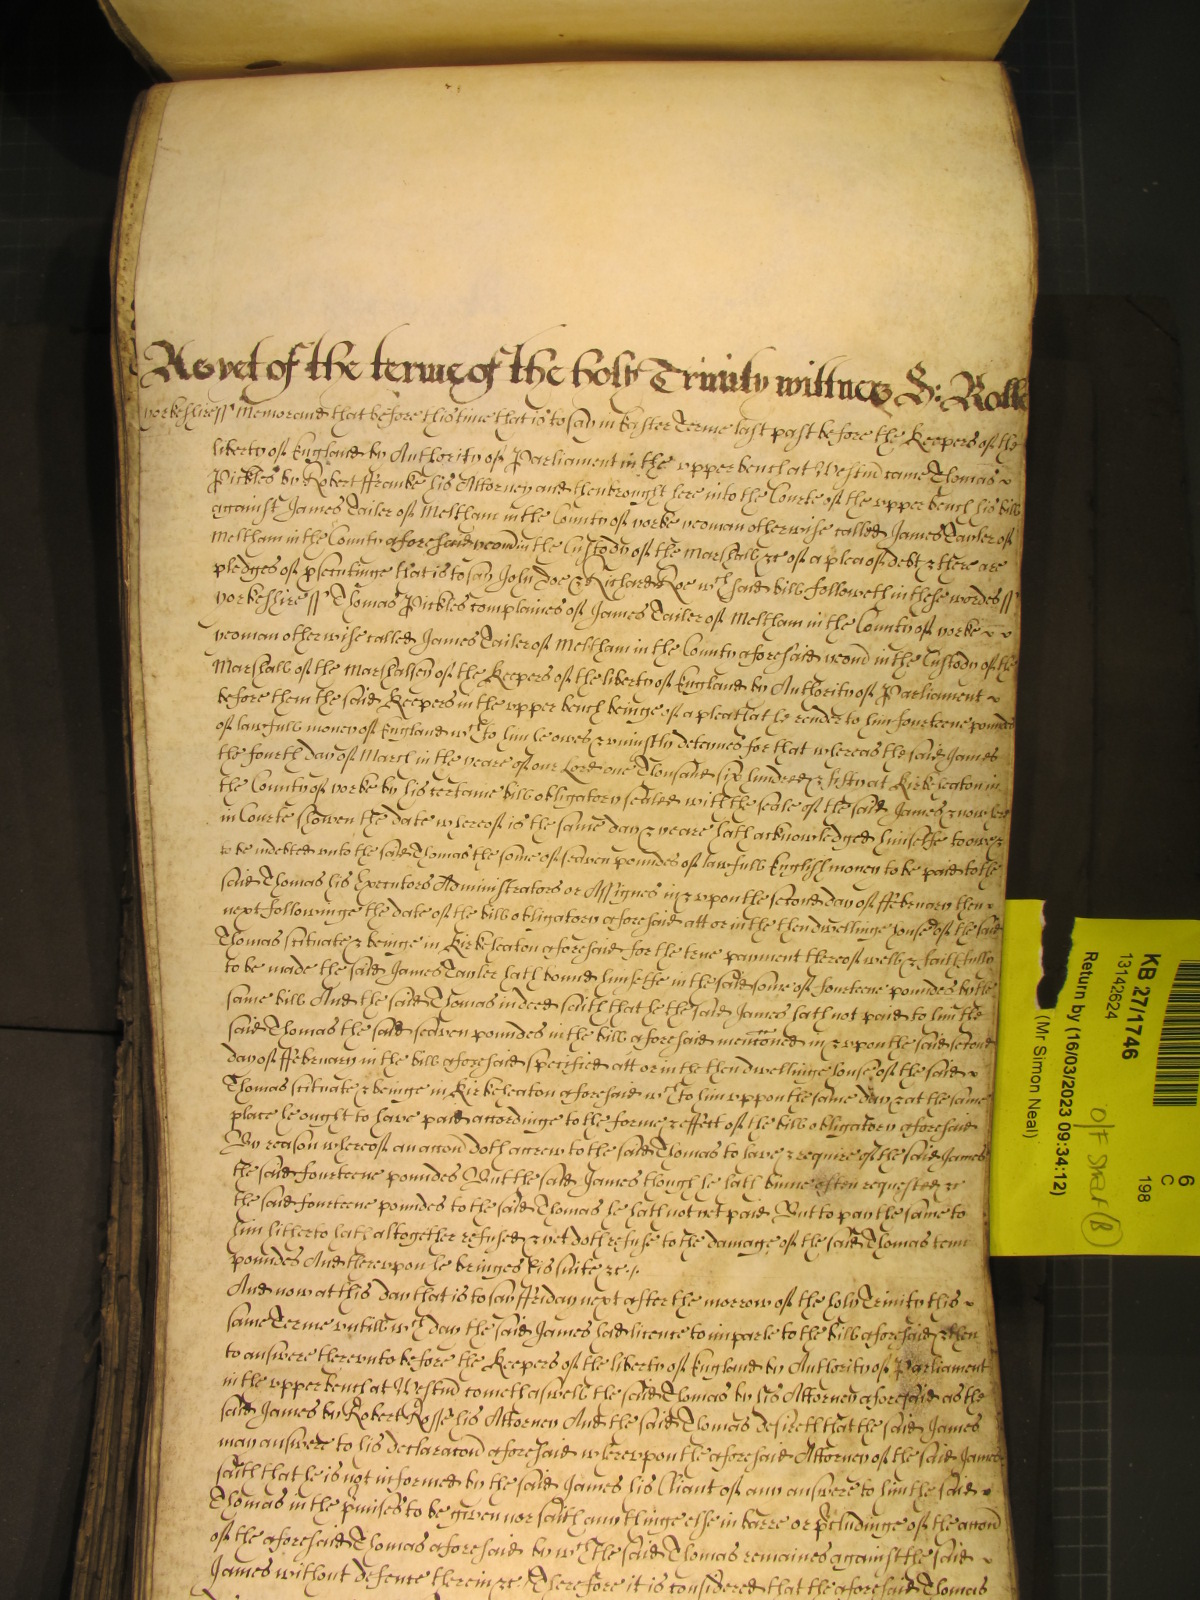 As yet of the terme of the holy Trinity wittnes H: Rolle
Yorkeshire ss Memorand that before this time that is to say in Easter Terme last past before the Keepers of the
liberty of England by Authority of Parliament in the upper bench at Westm came Thomas
Pickles by Robert ffranke his Attorney and then brought here into the Courte of the upper bench his bill
against James Tailer of Meltham in the County of yorke yeoman otherwise called James Tayler of
Meltham in the County aforesaid yeom in the Custody of the Marshall &c of a plea of debt & there are
pledges of psecutinge that is to say John Doe & Richard Roe wch said bill followeth in these wordes ss
yorkeshire ss Thomas Pickles complaines of James Tailer of Meltham in the County of yorke
yeoman otherwise called James Tailer of Meltham in the County aforesaid yeom in the Custody of the
Marshall of the Marshalsey of the Keepers of the liberty of England by Authority of Parliament
before them the said Keepers in the upper bench beinge of a plea that he render to him fourteene poundes
of lawfull money of England wch to him he owes & uniustly detaines for that whereas the said James
the fourth day of March in the yeare of our Lord one Thousand six hundred & fifty at Kirkheaton in
the County of yorke by his certaine bill obligatory sealed with the seale of the said James & now here
in Courte shewen the date whereof is the same day & yeare hath acknowledged himselfe to owe &
to be indebted unto the said Thomas the some of seaven poundes of lawfull English money to be paid to the
said Thomas his Executors Administrators or Assignes in & upon the second day of ffebruary then
next followinge the date of the bill obligatory aforesaid att or in the then dwellinge house of the said
Thomas scituate & beinge in Kirkheaton aforesaid for the true payment thereof well & faithfully
to be made the said James Tayler hath bound himselfe in the said some of fourteene poundes by the
same bill And the said Thomas indeed saith that he the said James hath not paid to him the
said Thomas the said seaven poundes in the bill aforesaid mencioned in & upon the said second
day of ffebruary in the bill aforesaid specified att or in the then dwellinge house of the said
Thomas scituate & beinge in Kirkheaton aforesaid wch to him uppon the same day & at the same
place he ought to have paid accordinge to the forme & effect of the bill obligatory aforesaid
By reason whereof an accon doth accrew to the said Thomas to have & require of the said James
the said fourteene poundes But the said James though he hath binne often requested &c
the said fourteene poundes to the said Thomas he hath not yet paid But to pay the same to
him hitherto hath altogether refused & yet doth refuse to the damage of the said Thomas tenn
poundes And thereupon he bringes his suite &c
And now at this day that is to say ffriday next after the morrow of the holy Trinity this
same Terme untill wch day the said James had licence to imparle to the bill aforesaid & then
to answere thereunto before the Keepers of the liberty of England by Authority of Parliament
in the upper bench at Westm cometh aswell the said Thomas by his Attorney aforesaid as the
said James by Robert Rosse his Attorney And the said Thomas desireth that the said James
may answere to his declaracon aforesaid whereupon the aforesaid Attorney of the said James
saith that he is not informed by the said James his Cliant of any answere to him the said
Thomas in the pmises to be given nor saith any thinge else in barre or pcludinge of the accon
of the aforesaid Thomas aforesaid by wch the said Thomas remaines against the said
James without defence therein &c Therefore it is considered that the aforesaid Thomas
KB 27/1746
13142624
Return by (16/03/2023 09:34:12)
(Mr Simon Neal)
6
C
198